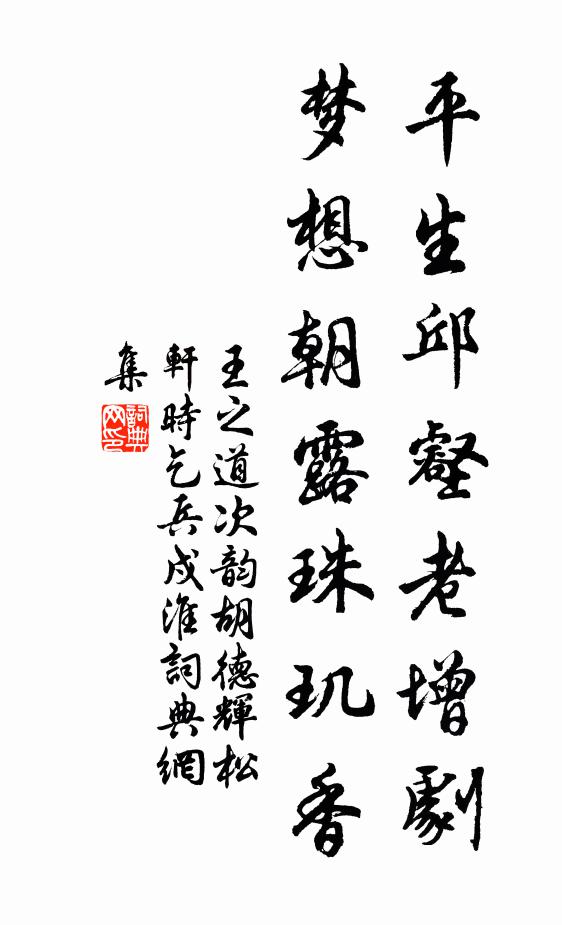 平生邱壑老增劇
梦想朝露珠玑香
王之道次韵胡德輝松
軒時乞兵戍淮詞典網
集
詞典
网印